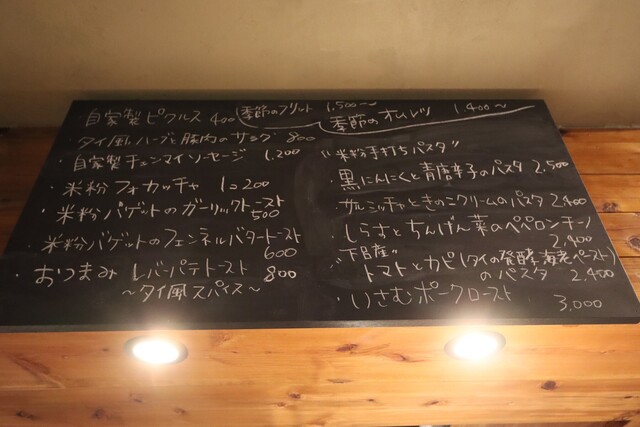 自家製ピクルス 400
季節のフリット 1,500〜
季節のオムレツ 1.400〜
タイ風ハーブと豚肉のサラダ 800
・自家製チェンマイソーセージ 1.200
・米粉フォカッチャ 1コ200
・米粉バゲットのガーリックトースト
500
・米粉バゲットのフェンネルバタートースト
600
・おつまみレバーパテトースト 800
〜タイ風スパイス〜
"米粉手打ちパスタ"
・黒にんにくと青唐辛子のパスタ 2,500
・サルシッチャときのこクリームのパスタ 2,400
・しらすとちんげん菜のペペロンチーノ
2,400
"下田産"
・トマトとカピ(タイの発酵海老ペースト)
のパスタ 2,400
・いさむポークロースト
3,000